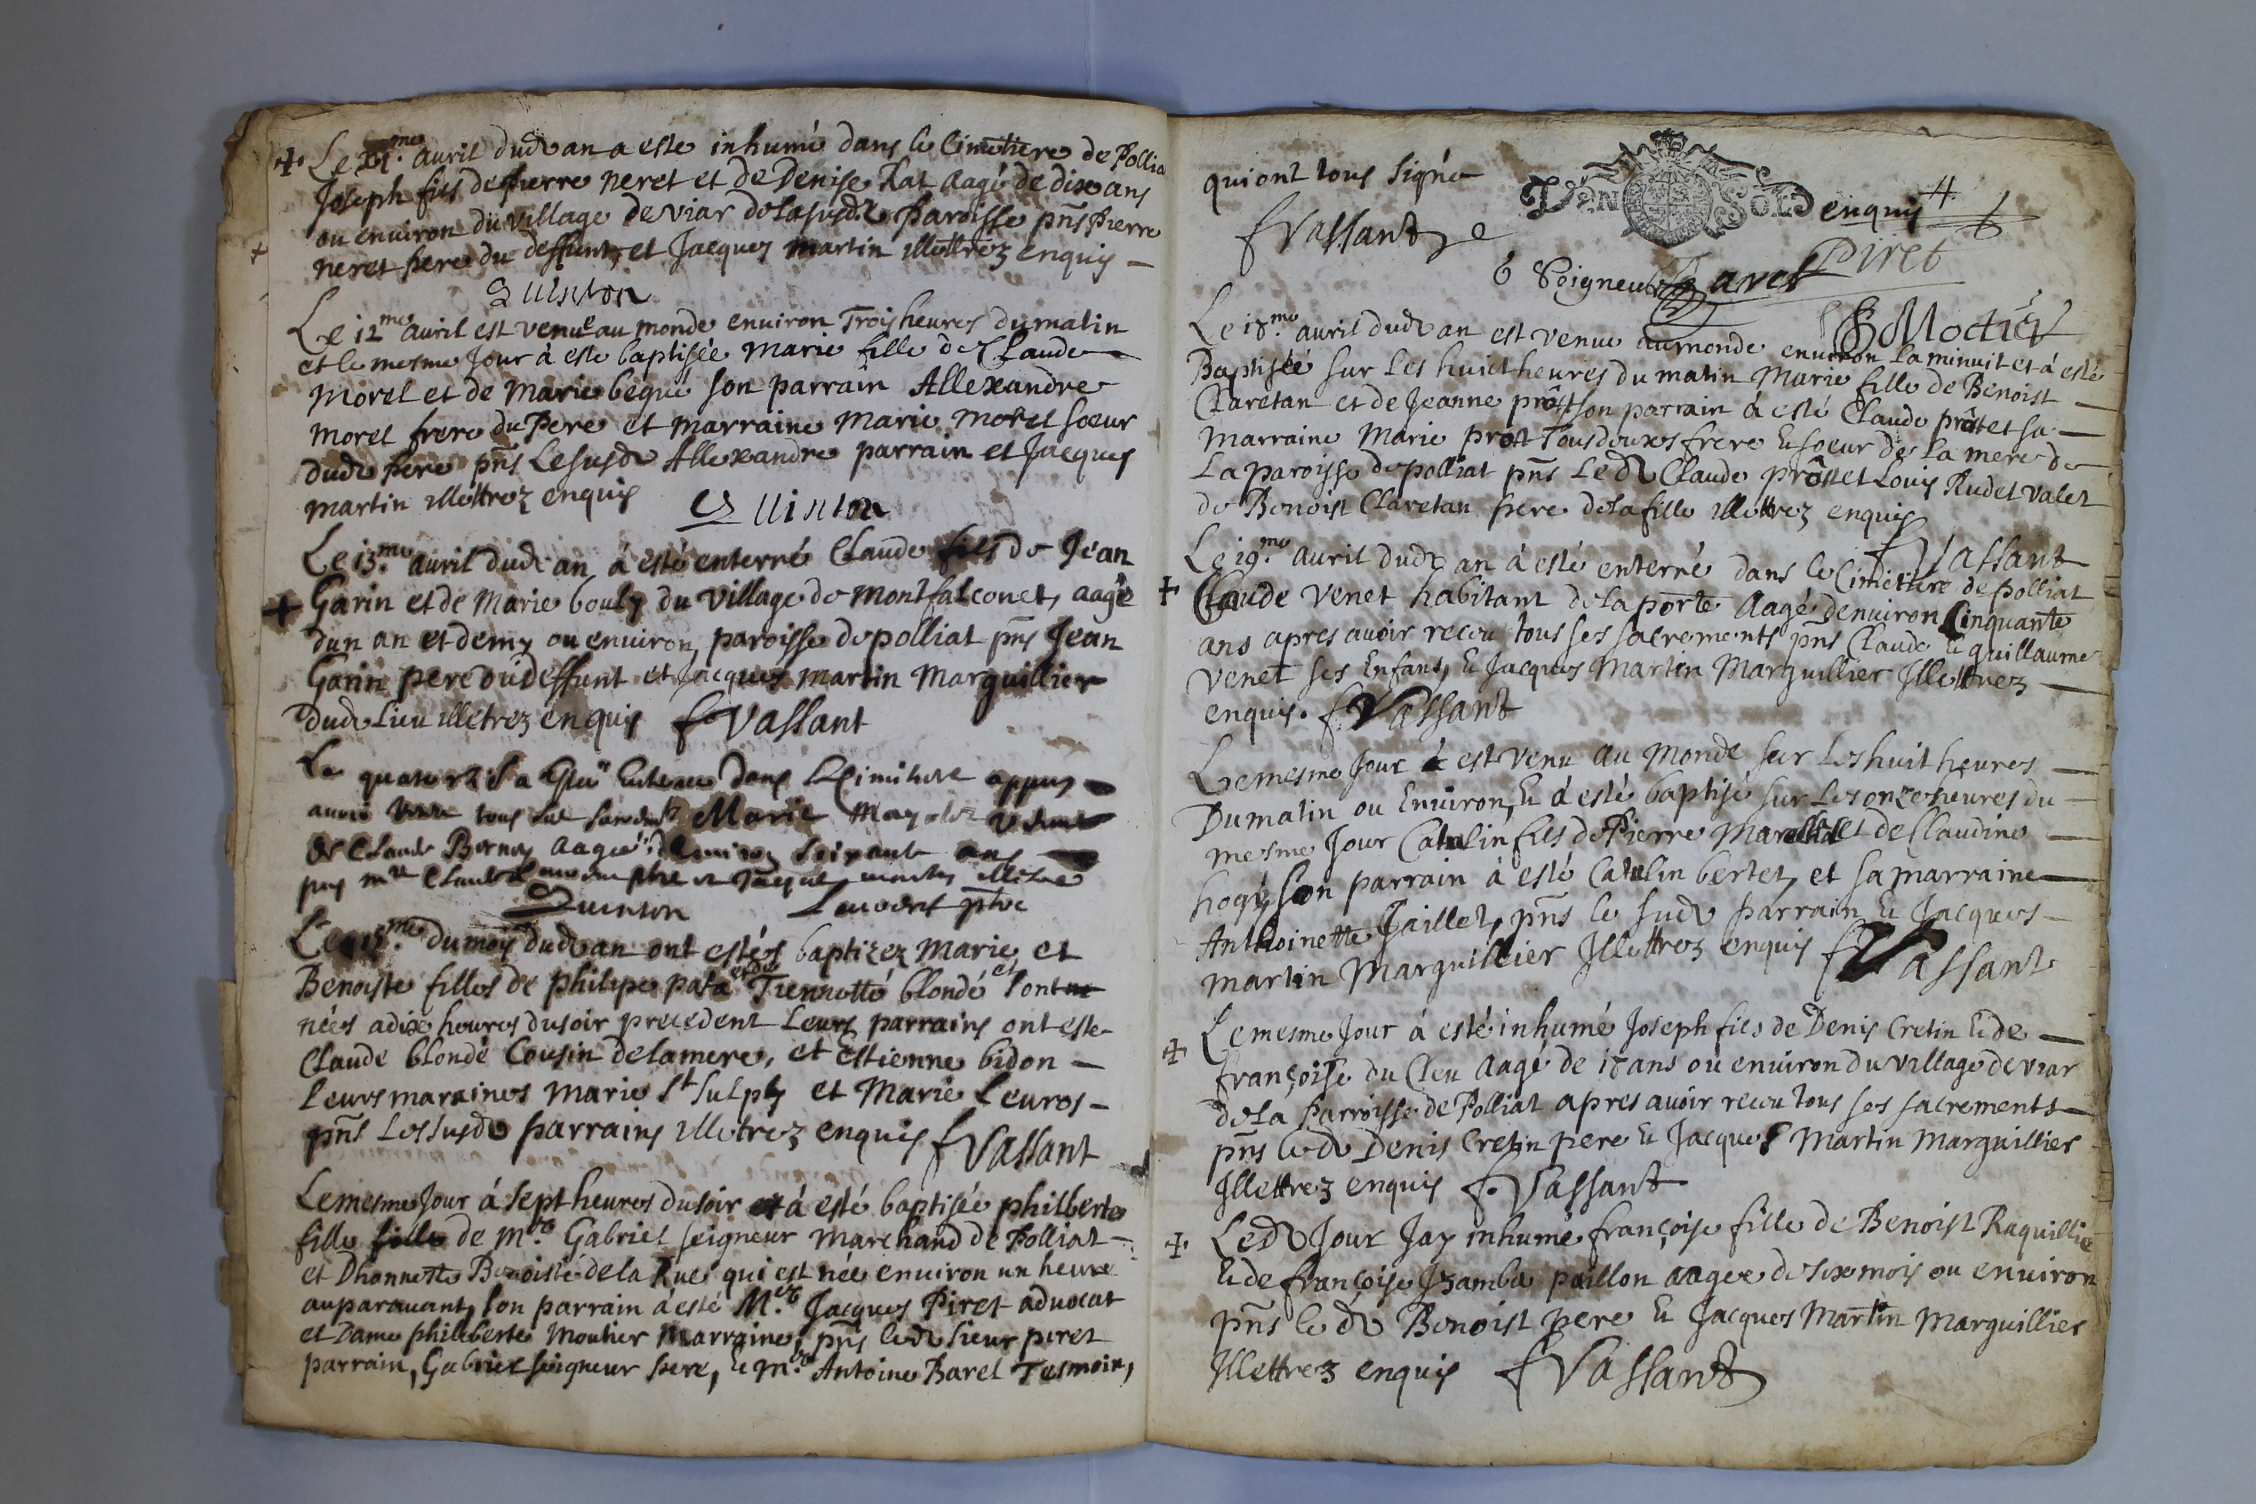 Le 11.me avril dud an a este inhumé dans le Cimetiere de Pollia
Joseph fils de pierre neret et de Denise Rat aagé de dix ans
ou environ du village de viar de la susde Paroisse pñs Pierre
neret pere du deffunt, et Jacques martin illettrez enquis
Quinton
Le 12me avril est venue au monde environ Trois heures du matin
et le mesme Jour à este baptisée Marie fille de Claude
Morel et de Marie bequé son parrain Allexandre
Morel frere du Pere et Marraine Marie Morel soeur
dud Pere pñs Lesusd Allexandre parrain et Jacques
martin illettrez enquis
Quinton
Le 13.me avril dud an à esté enterré Claude fils de Jean
Garin et de Marie bouly du village de montfalconet, aagé
dun an et demy ou environ, paroisse de polliat pñs Jean
Garin pere dud deffunt et Jacques martin Marguillier
dud Lieu illetrez enquis f Vassant
Le quatorz a Esté Enterree Dans Le Cimitiere appres
avoir tous Marie
de Claude Bornay aagée denviron soixante ans
pns mre Claude ptre et Jaque martin
Quinton ptre
Le 15.me du mois dud an ont estés baptizez Marie et
Benoiste filles de philipe pata et de Tiennette blondé et sont
nées a dix heures du soir precedent Leurs parrains ont este
Claude blondé Cousin de la mere, et Estienne bidon
Leurs maraines Marie St Sulpy et Marie Leuros
pñs Les susd Parrains illetrez enquis f Vassant
Le mesme Jour à sept heures du soir et à esté baptisée philberte
fille fille de Mre Gabriel seigneur Marchand de Polliat
et Dhonneste Benoiste de la Rue qui est née environ un heure
auparavant, son parrain à esté M.re Jacques Piret advocat
et Dame philiberte Moutier Marraine, pñs led sieur peret
parrain, Gabriel seigneur Pere, & Mre Antoine Barel Tesmoin,
qui ont tous signé
VN SOL
enquis
f Vassant
Seigneur
Barel
Piret
Le 18.me avril dud an est venue au monde environ la minuit et à esté
Baptiséé sur Les huict heures du matin Marie fille de Benoist
Claretan et de Jeanne prôst son parrain à esté Claude prôst et sa
Marraine Marie prost Tous deux frere & soeur de La mere de
La paroisse de polliat pñs Led Claude prôst et Louis Rudet valet
de Benoist Claretan Pere de la fille illettrez enquis
f Vassant
Le 19.me avril dud an à esté enterré dans le Cimetiere de polliat
Claude Venet habitant de la porte aagé denviron Cinquante
ans apres avoir receu tous ses sacrements pñs Claude & guillaume
Venet ses Enfans, & Jacques Martin Marguillier Illettrez
enquis. f. Vassant
Le mesme Jour à est venu au Monde sur Les huit heures
Du matin ou Environ, & à esté baptisé sur Les onze heures du
mesme Jour Catelin fils de Pierre et de Claudine
son parrain à esté Catelin bertet, et sa marraine
Anthoinette Jaillet, pñs le susd Parrain & Jacques
martin Marguillier Illettrez enquis f Vassant
Le mesme Jour à esté inhumé Joseph fils de Denis Cretin & de
françoise du Cleu aagé de 18 ans ou environ du village de viar
de la Parroisse de Polliat apres avoir receu tous ses sacrements
pñs led Denis Cretin pere & Jacques Martin Marguillier
Illettrez enquis f. Vassant
Led Jour Jay inhumé françoise fille de Benoist Raquillie
& de françoise paillon aagee de six mois ou environ
pñs le d Benoist pere & Jacques Martin Marguillier
Illettrez enquis f Vassant